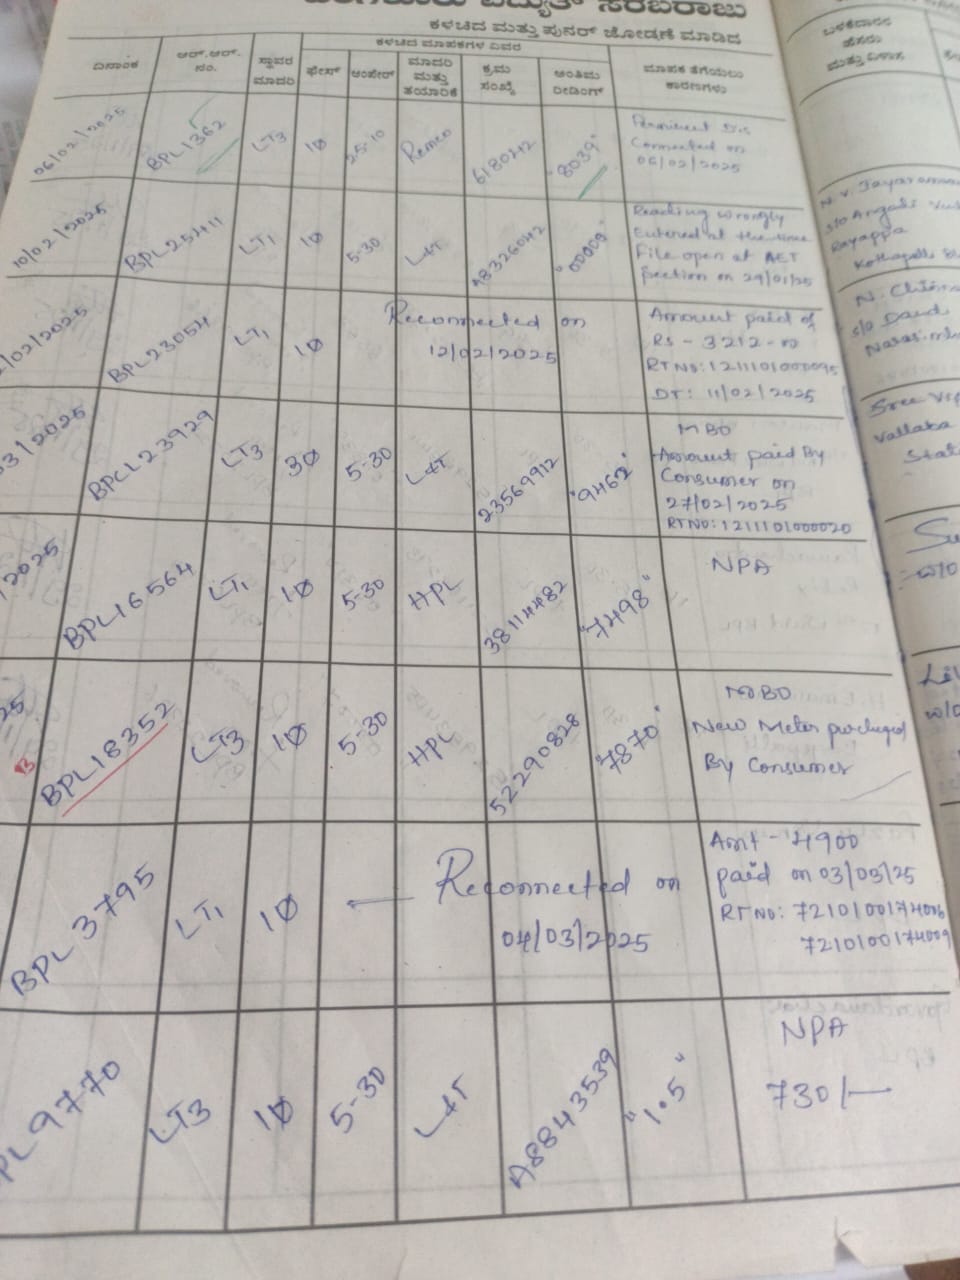 ವಿದ್ಯುತ್ ಸರಬರಾಜು
ಕಳಚಿದ ಮತ್ತು ಪುನರ್ ಜೋಡಣೆ ಮಾಡಿದ
ಕಳಚಿದ ಮಾಪಕಗಳ ವಿವರ
ದಿನಾಂಕ
ಆರ್.ಆರ್. ನಂ.
ಸ್ಥಾವರ ಮಾದರಿ
ಫೇಸ್
ಆಂಪೇರ್
ಮಾದರಿ ಮತ್ತು ತಯಾರಿಕೆ
ಕ್ರಮ ಸಂಖ್ಯೆ
ಅಂತಿಮ ರೀಡಿಂಗ್
ಮಾಪಕ ತೆಗೆಯಲು ಕಾರಣಗಳು
ಬಳಕೆದಾರರ
ಹೆಸರು
ಮತ್ತು ವಿಳಾಸ
06/02/2025 BPL1362 LT3 1Ø 25-10 Remco 618042 "8039"
Permanent Dis
Connected on
06/02/2025
10/02/2025 BPL25411 LT1 1Ø 5-30 L&T A8326042 "00009"
Reading wrongly
Entered at the time
File open at AET
Section on 29/01/25
/02/2025 BPL23054 LT1 1Ø Reconnected on
12/02/2025
Amount paid of
Rs - 3212-00
RTNO: 1211101000095
DT: 11/02/2025
03/2025 BPCL23929 LT3 3Ø 5-30 L&T 23569912 "9462"
MBO
Amount paid By
Consumer on
27/02/2025
RTNO: 1211101000020
/2025 BPL16564 LT1 1Ø 5-30 HPL 38114482 "7498"
NPA
25 BPL18352 LT3 1Ø 5-30 HPL 52290828 "7870"
MBO
New Meter purchased
By Consumer
BPL3795 LT1 1Ø ← Reconnected on
04/03/2025
Amt - 4900
paid on 03/03/25
RTNO: 7210100174006
7210100174009
PL9770 LT3 1Ø 5-30 L&T A8843539 "1.5"
NPA
730/-
N. V. Jayaram
S/o Angadi
Rayappa
Kothapalli
S/o
Narasimha
Sree
Vallaba
W/O
W/O